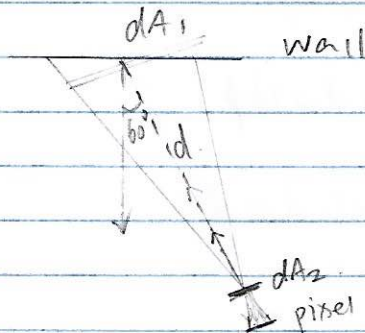 dA1
wall
60°
d
dA2
pixel